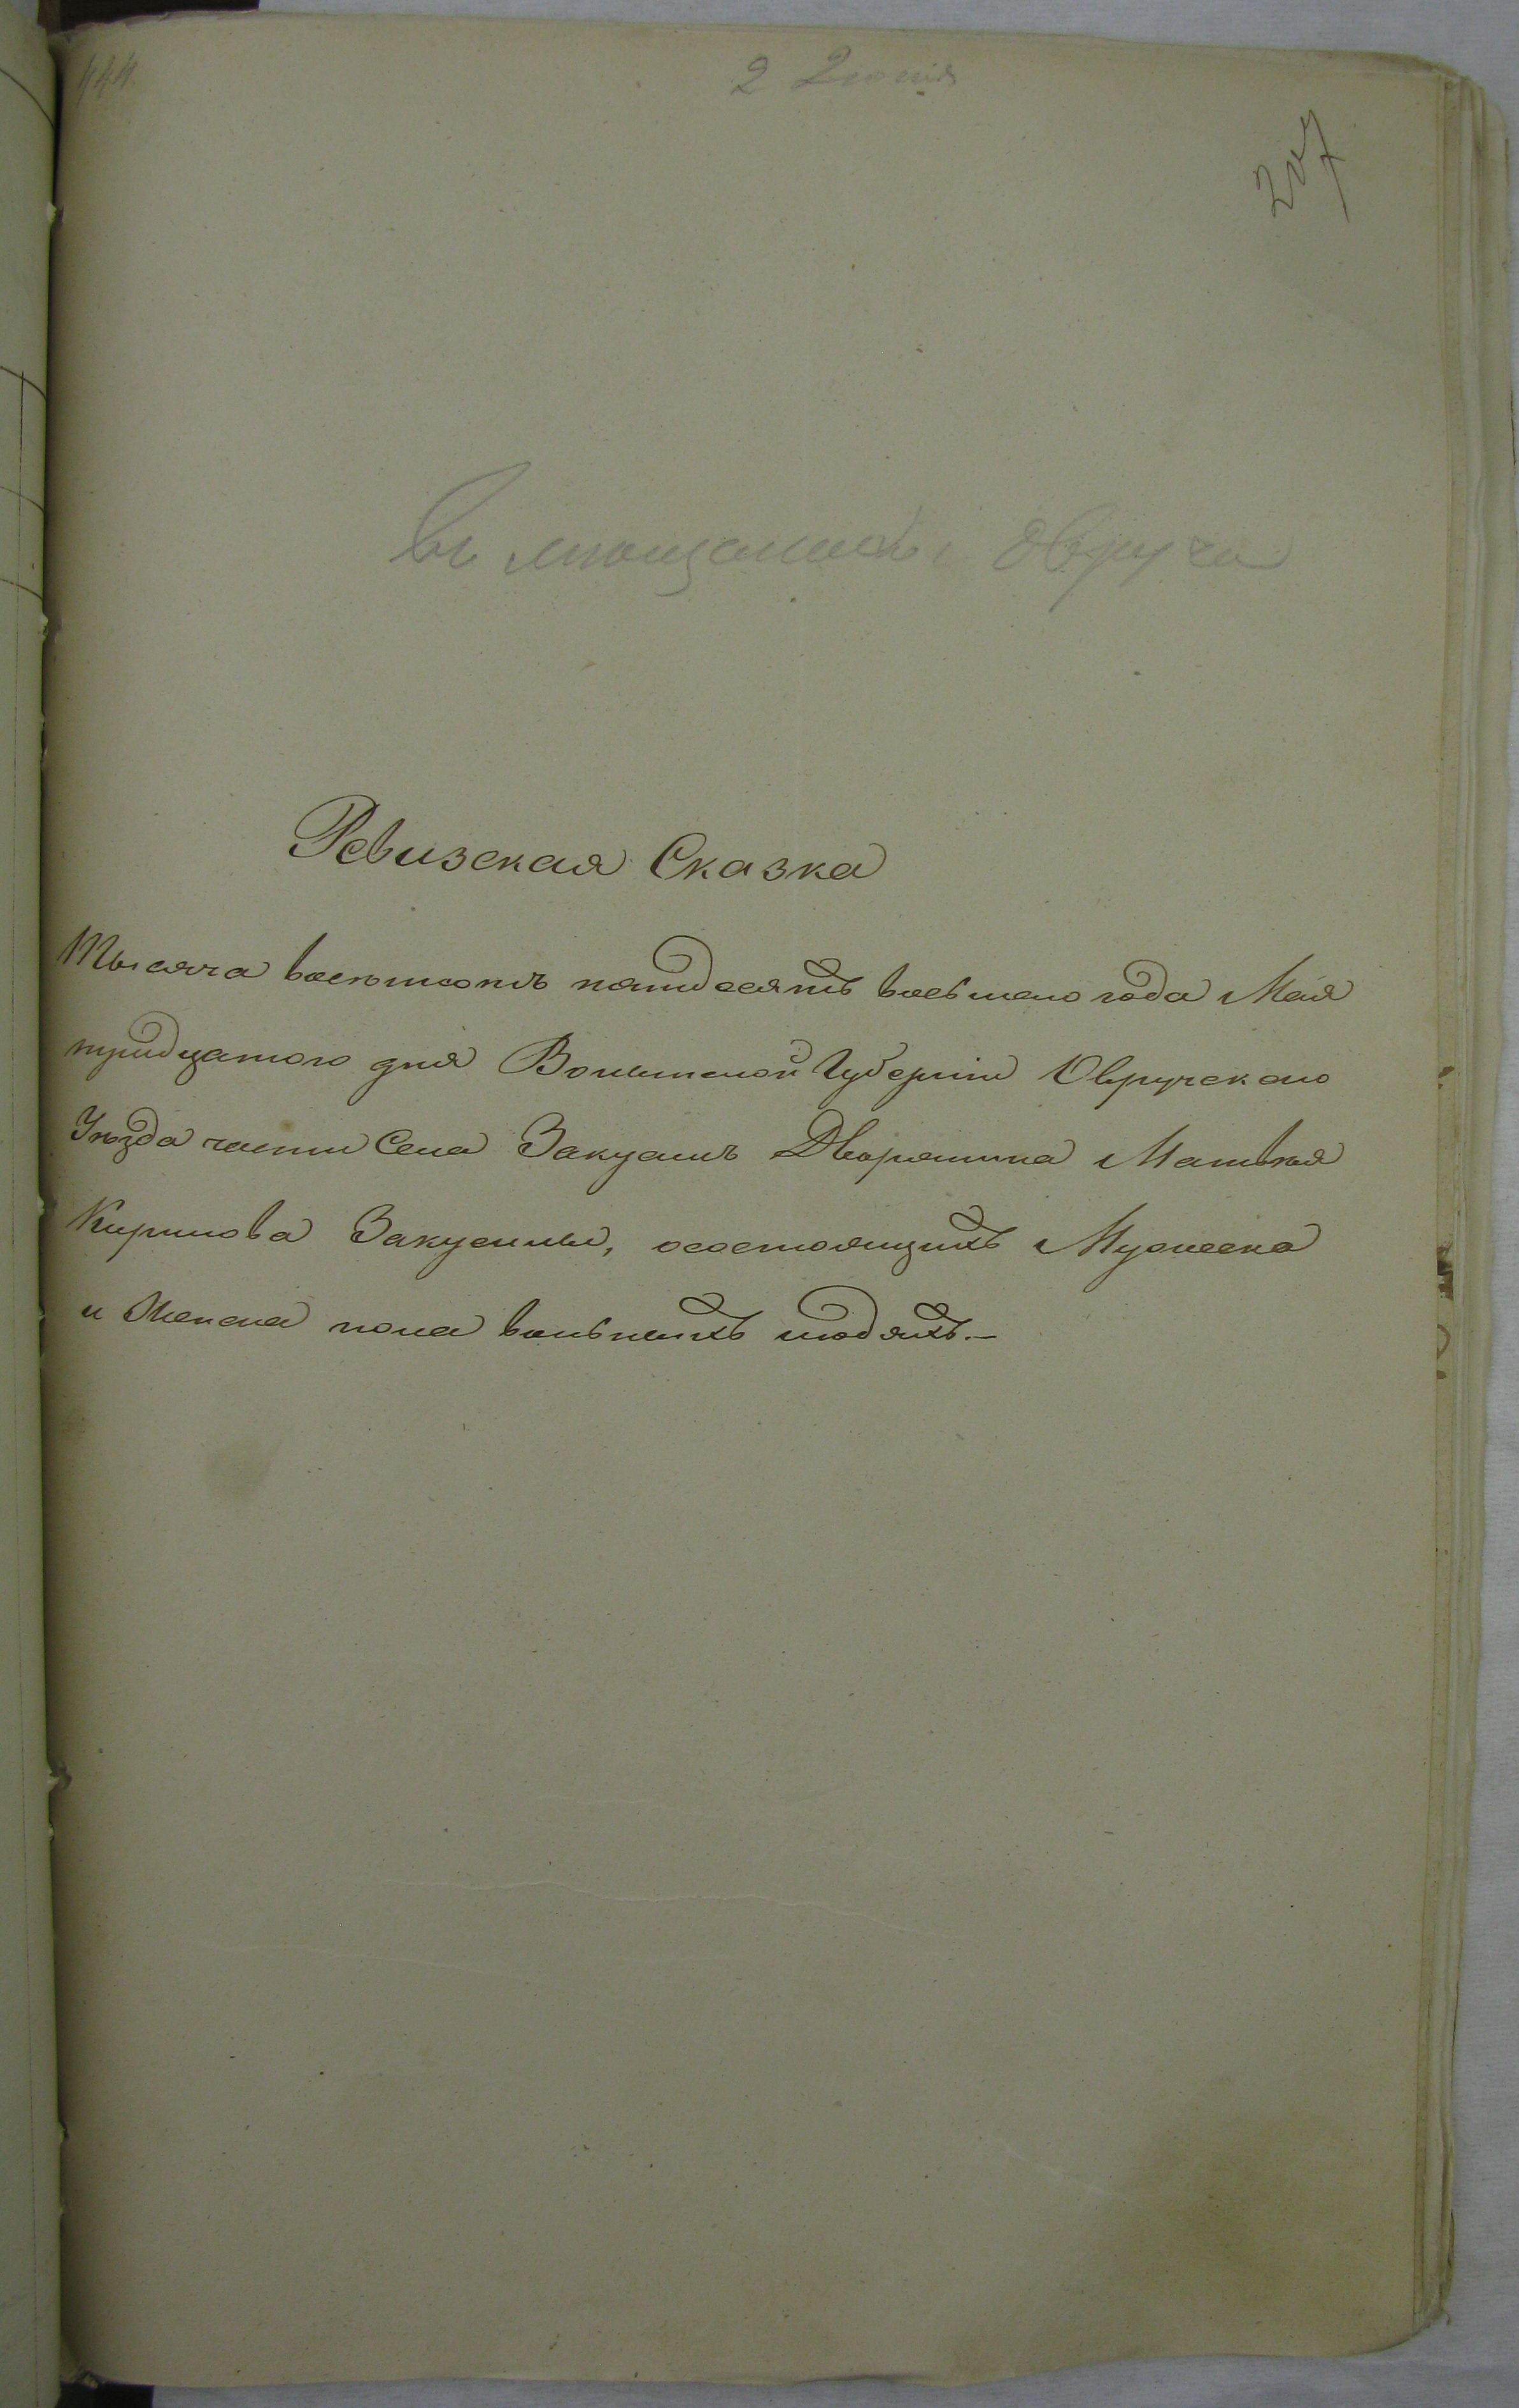 444
2 Июнія
207
въ мѣщанахъ г. Овруча
Ревизская Сказка
Тысяча восемьсотъ пятидесятъ восьмаго года Мая
тридцатого дня Волынской Губерніи Овручскаго
Уѣзда части Села Закусилъ Дворянина Матвѣя
Кирилова Закусилы, осостоящихъ Мужеска
и Женска пола вольныхъ людяхъ.—